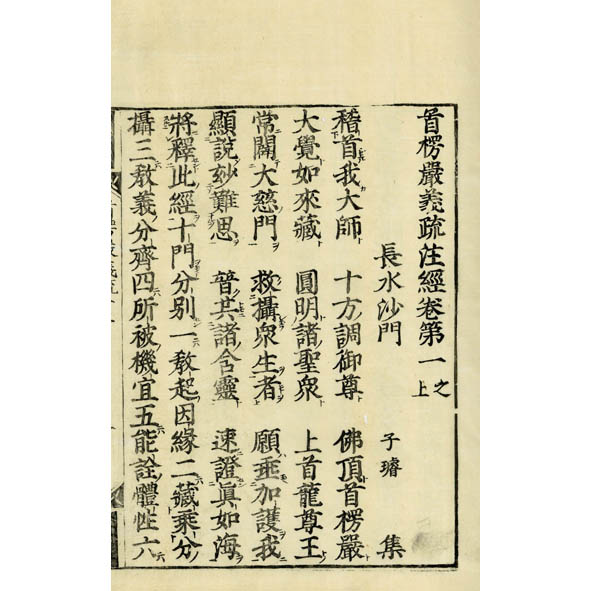 首楞嚴義疏注經卷第一之上
長水沙門 子璿 集
稽首我大師 十方調御尊 佛頂首楞嚴
大覺如來藏 圓明諸聖眾 上首龍尊王
常闢大慈門 救攝眾生者 願垂加護我
顯說妙難思 普共諸含靈 速證真如海
將釋此經十門分別一教起因緣二藏乘分
攝三教義分齊四所被機宜五能詮體性六